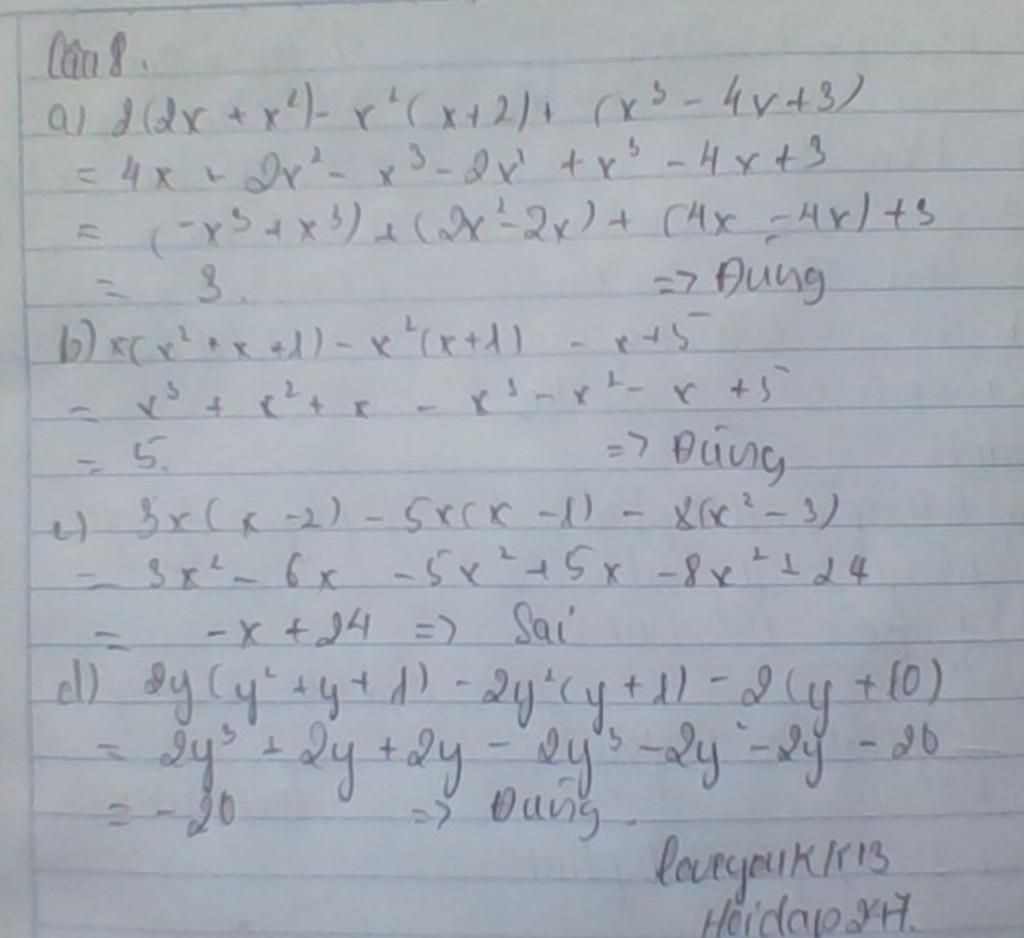 Câu 8.
a) 2(2x + x²) - x²(x+2) + (x³ - 4x+3)
= 4x + 2x² - x³ - 2x² + x³ - 4x+3
= (-x³ + x³) + (2x² - 2x) + (4x - 4x) + 3
= 3. => Đúng
b) x(x² + x +1) - x²(x+1) - x +5
= x³ + x² + x - x³ - x² - x +5
= 5. => Đúng
c) 3x(x -2) - 5x(x -1) - 8(x² - 3)
= 3x² - 6x - 5x² + 5x - 8x² + 24
= -x + 24 => Sai
d) 2y(y² + y + 1) - 2y²(y + 1) - 2(y + 10)
= 2y³ + 2y + 2y - 2y³ - 2y² - 2y - 20
= -20 => Đúng.
Hoidap247.